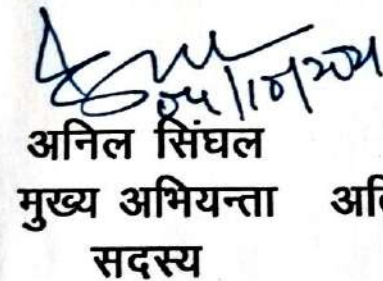 04/10/2021
अनिल सिंघल
मुख्य अभियन्ता
सदस्य